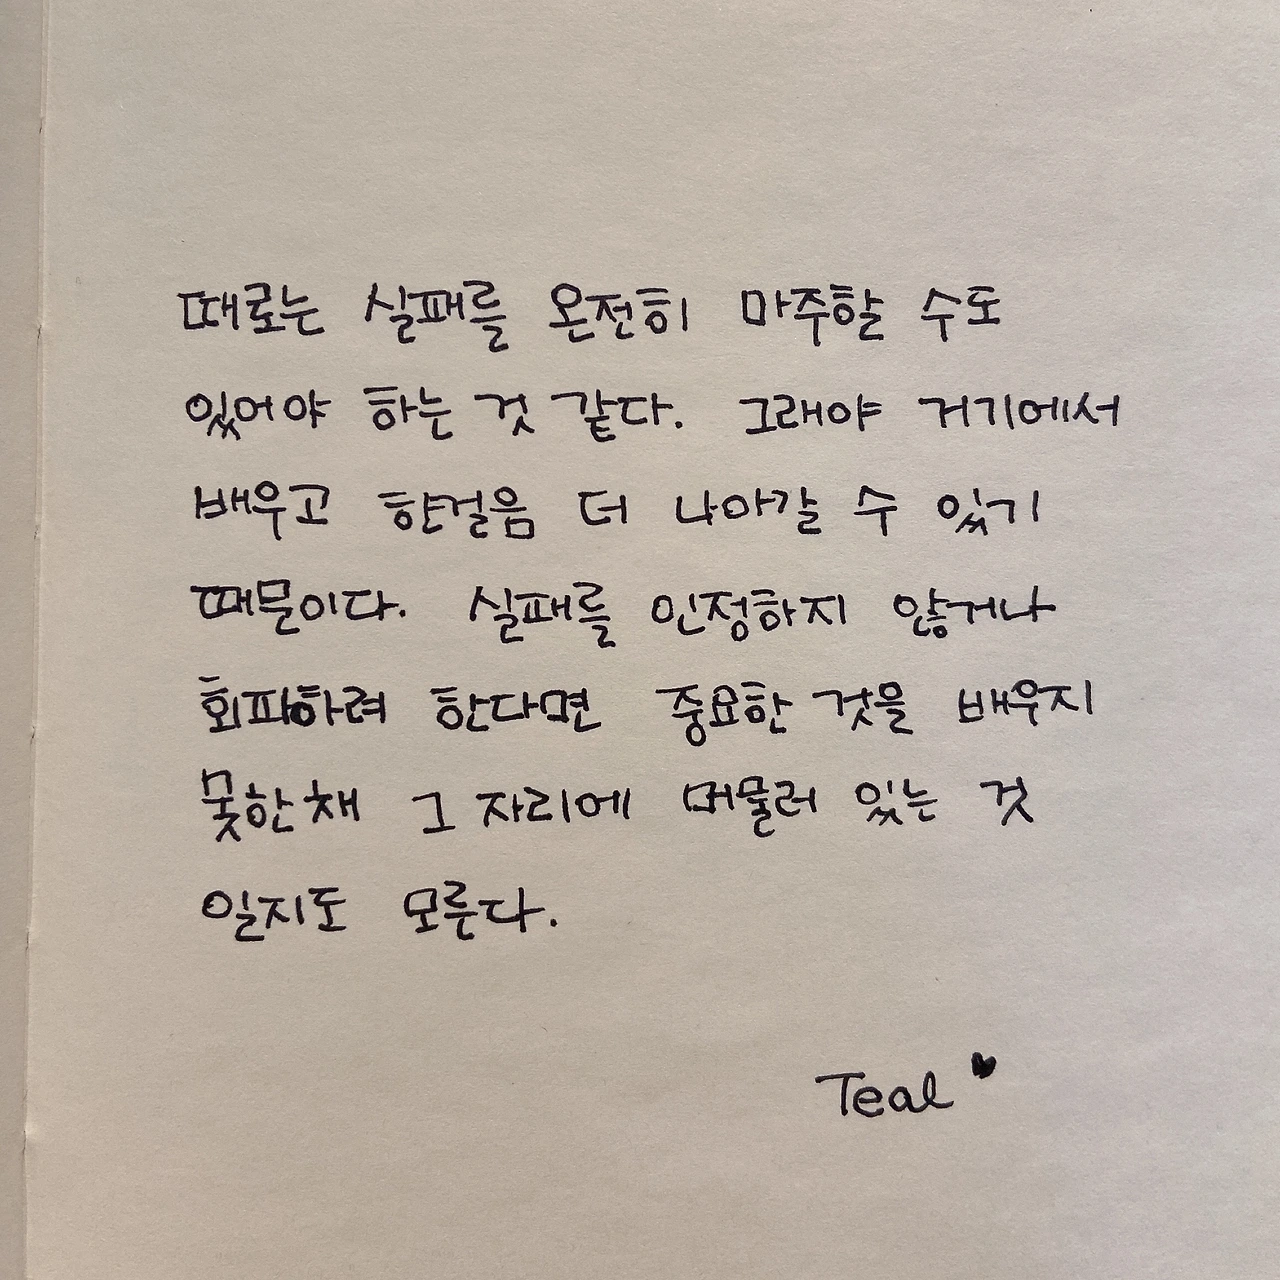 때로는 실패를 온전히 마주할 수도
있어야 하는 것 같다. 그래야 거기에서
배우고 한걸음 더 나아갈 수 있기
때문이다. 실패를 인정하지 않거나
회피하려 한다면 중요한 것을 배우지
못한채 그 자리에 머물러 있는 것
일지도 모른다.
Teal ♥